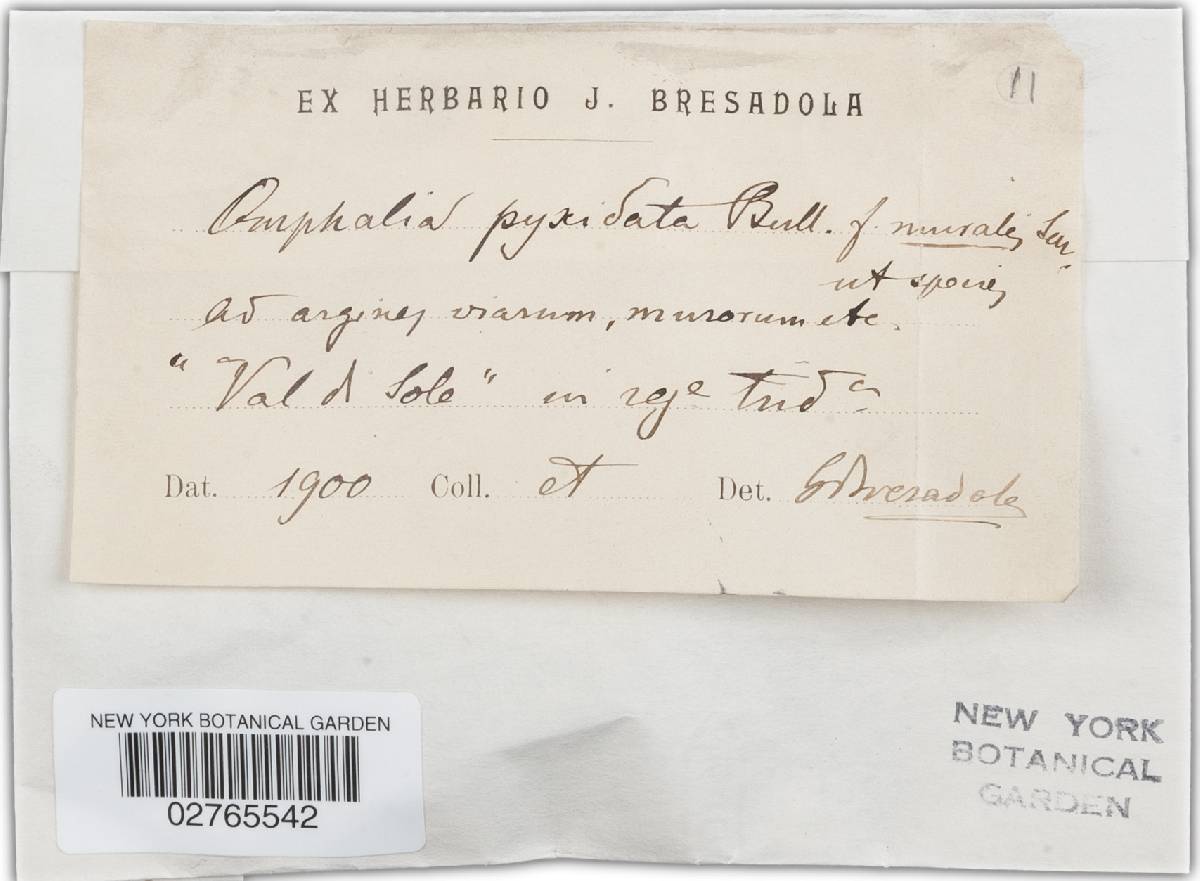 11
EX HERBARIO J. BRESADOLA
Omphalia pyxidata Bull. f. muralis Sow.
ut species
ad argines viarum, murorum etc.
"Val di Sole" in rge Trid
Dat. 1900 Coll. et Det. GBresadola
NEW YORK BOTANICAL GARDEN
02765542
NEW YORK
BOTANICAL
GARDEN